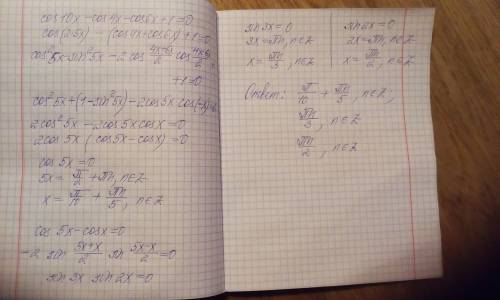 cos 10x - cos 4x - cos 6x + 1 = 0
cos(2·5x) - (cos 4x + cos 6x) + 1 = 0
cos²5x - sin²5x - 2 cos (4x+6x)/2 cos (4x-6x)/2 +
+ 1 = 0
cos²5x + (1 - sin²5x) - 2cos 5x cos(-x) = 0
2cos²5x - 2cos 5x cos x = 0
2cos 5x (cos 5x - cos x) = 0
cos 5x = 0
5x = π/2 + πn, n∈Z
x = π/10 + πn/5, n∈Z
cos 5x - cos x = 0
-2 sin (5x+x)/2 sin (5x-x)/2 = 0
sin 3x sin 2x = 0
sin 3x = 0
3x = πn, n∈Z
x = πn/3, n∈Z
sin 2x = 0
2x = πn, n∈Z
x = πn/2, n∈Z
Ответ: π/10 + πn/5, n∈Z;
πn/3, n∈Z
πn/2, n∈Z